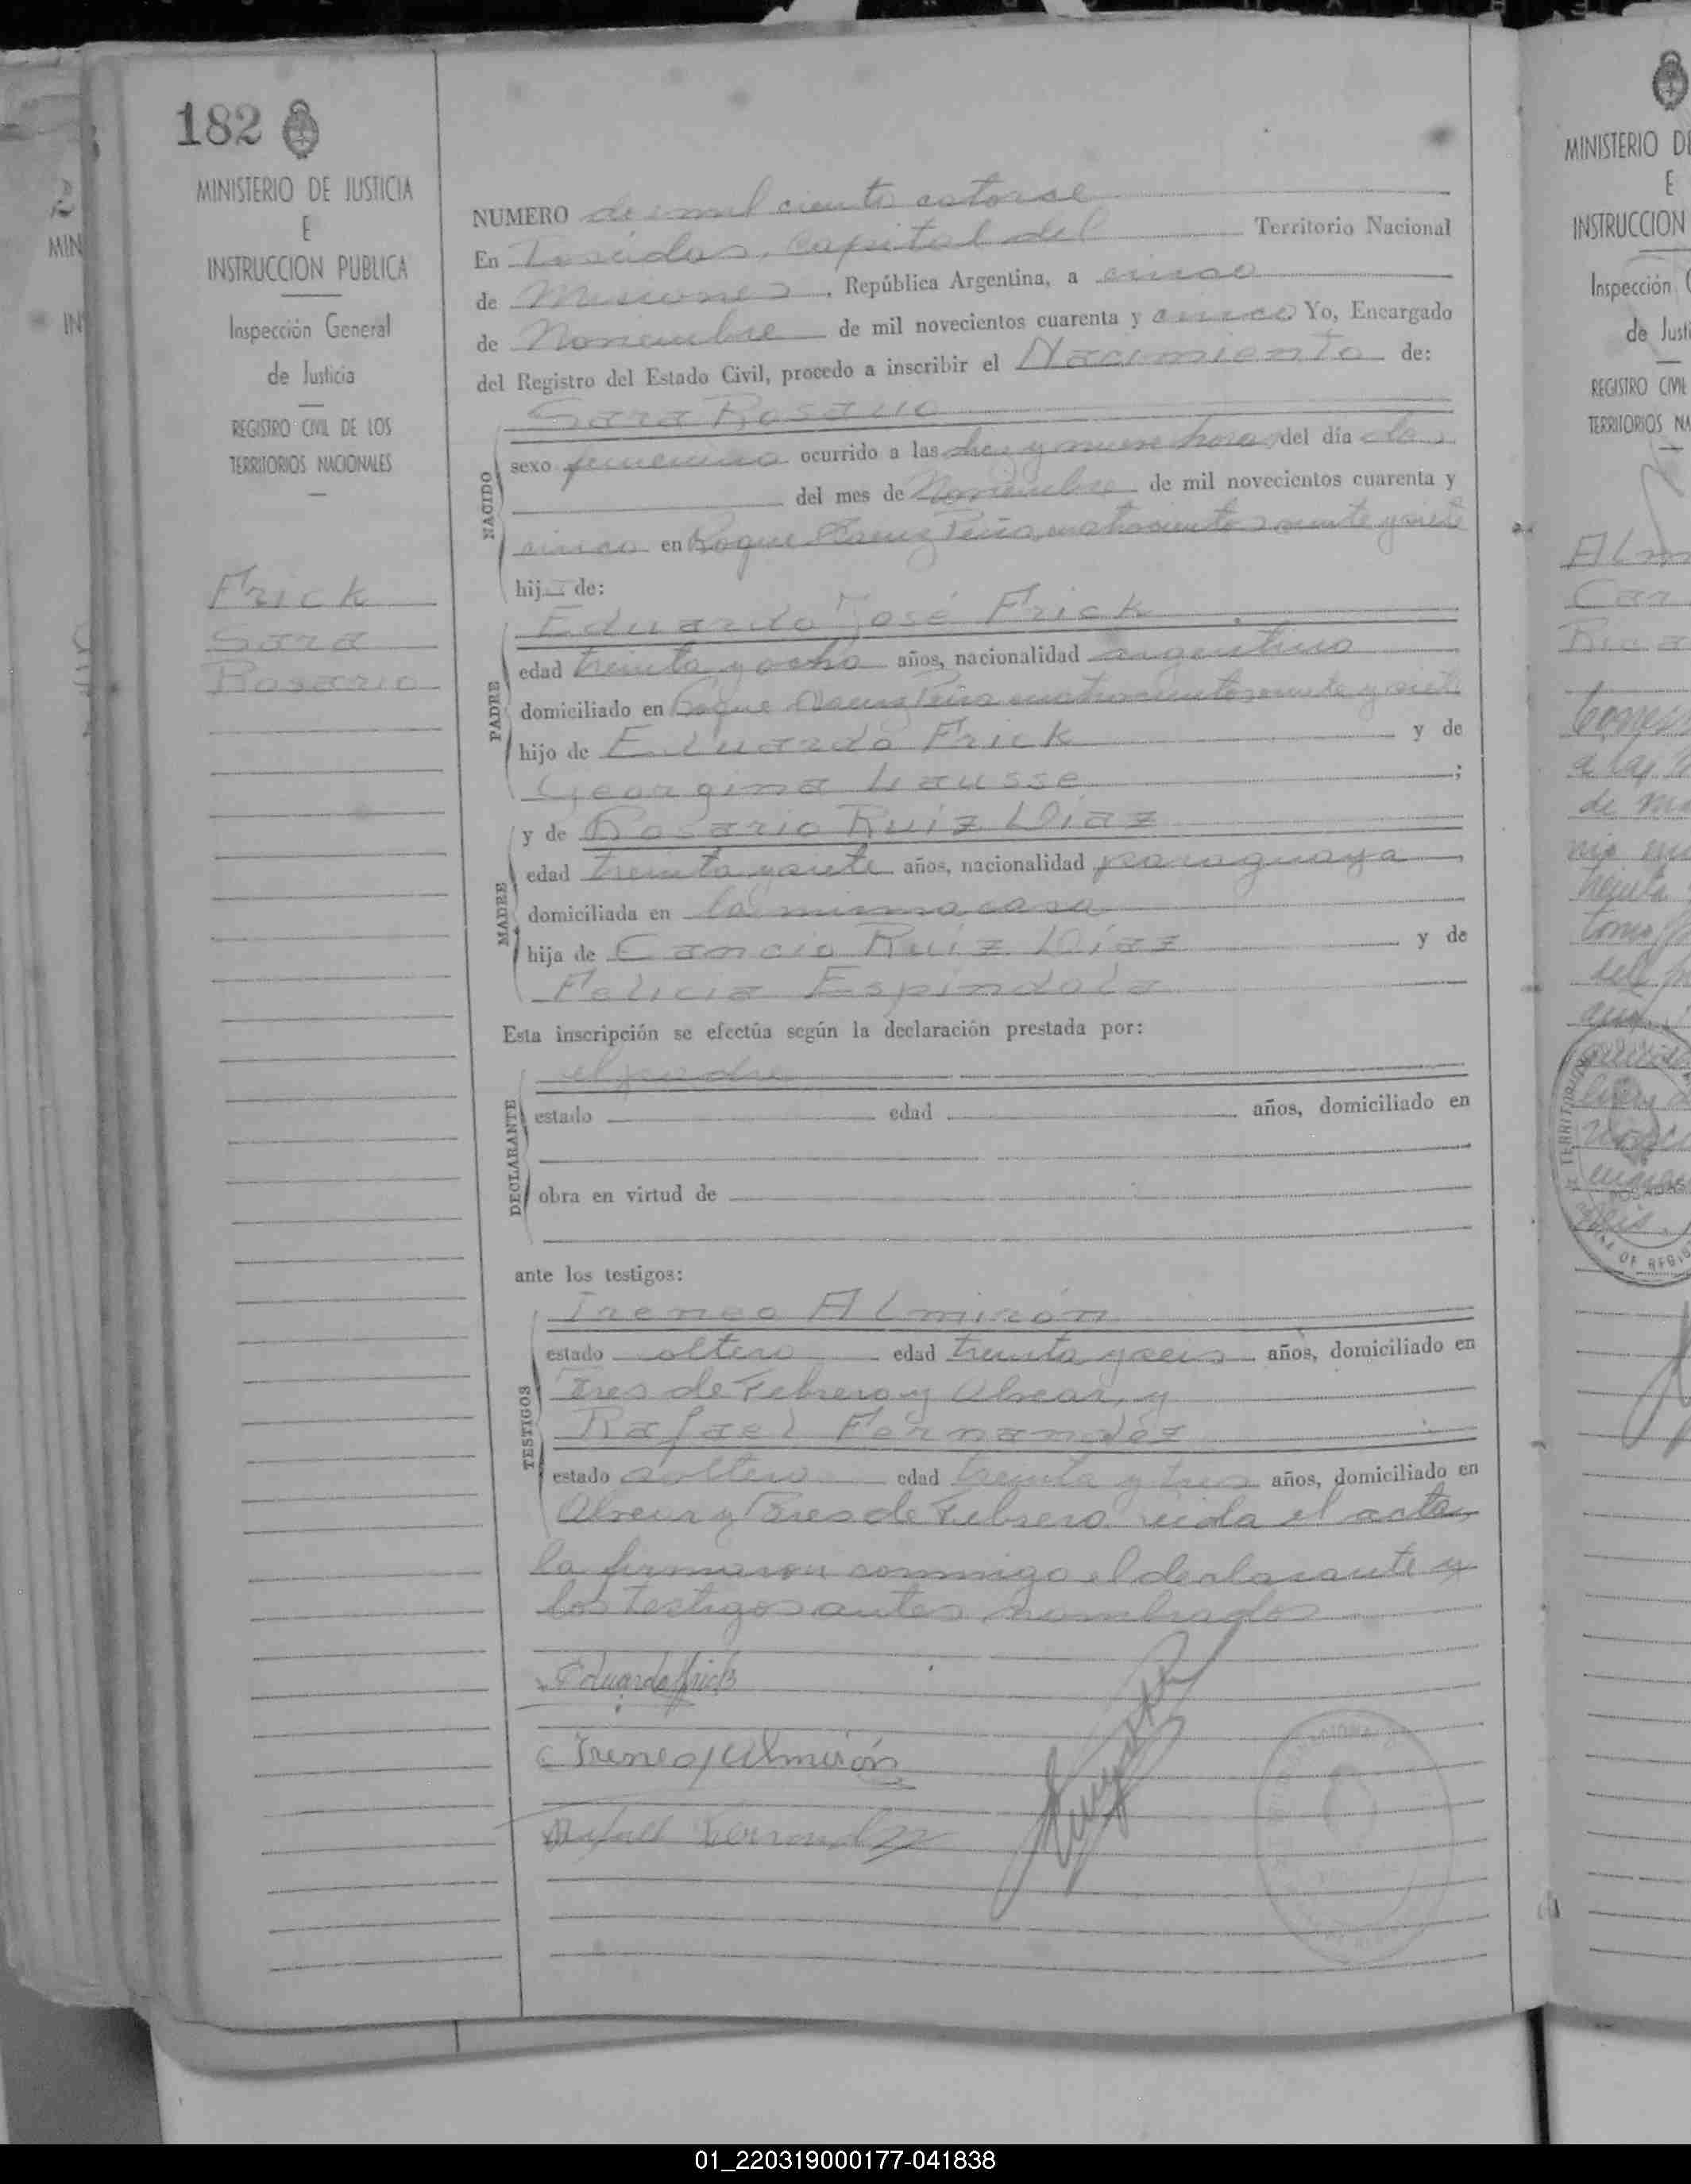 182
MINISTERIO DE JUSTICIA
E
INSTRUCCION PUBLICA
Inspección General
de Justicia
REGISTRO CIVIL DE LOS
TERRITORIOS NACIONALES
Frick
Sara
Rosario
NUMERO dos mil ciento catorse
En Posadas, Capital del Territorio Nacional
de Misiones, República Argentina, a cinco
de Noviembre de mil novecientos cuarenta y cinco Yo, Encargado
del Registro del Estado Civil, procedo a inscribir el Nacimiento de:
Sara Rosario
NACIDO
sexo femenino ocurrido a las diez y nueve horas del día dos
del mes de Noviembre de mil novecientos cuarenta y
cinco en Roque Saenz Peña cuatrocientos veinte y siete
hij de:
Eduardo José Frick
PADRE
edad treinta y ocho años, nacionalidad argentino
domiciliado en Roque Saenz Peña cuatrocientos veinte y siete
hijo de Eduardo Frick y de
Georgina Hausse;
MADRE
y de Rosario Ruiz Diaz
edad treinta y siete años, nacionalidad paraguaya
domiciliada en la misma casa
hija de Cancio Ruiz Díaz y de
Felicia Espíndola
Esta inscripción se efectúa según la declaración prestada por:
el padre
DECLARANTE
estado edad años, domiciliado en
obra en virtud de
ante los testigos:
Ireneo Almirón
TESTIGOS
estado soltero edad treinta y seis años, domiciliado en
Tres de Febrero y Alvear, y
Rafael Fernandez
estado soltero edad treinta y tres años, domiciliado en
Alvear y Tres de Febrero leida el acta,
la firmaron conmigo el declarante y
los testigos antes nombrados
Eduardo Frick
Ireneo Almirón
Rafael Fernandez
MINISTERIO DE
E
INSTRUCCION
Inspección
de Justi
REGISTRO CIVIL
TERRITORIOS NA
01_220319000177-041838